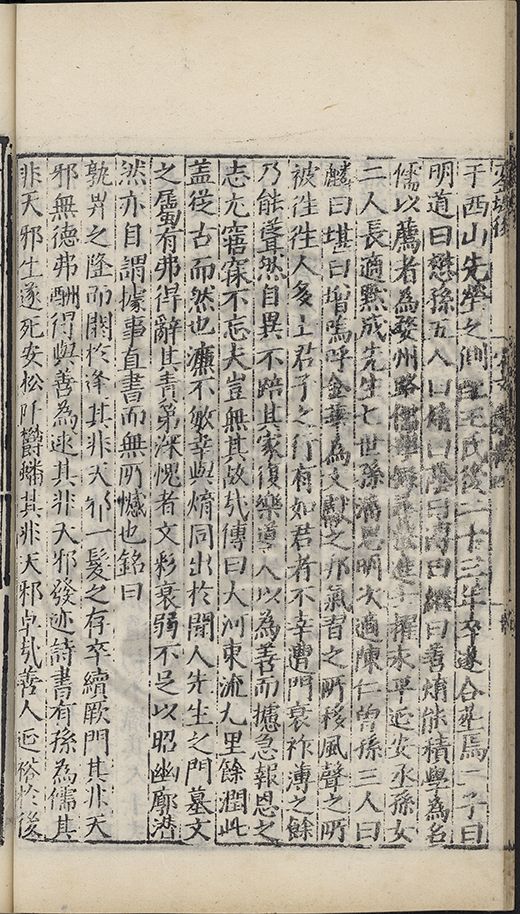 于西山先塋之側王氏後二十三年卒遂合葬焉二子曰
明道曰懋孫五人曰熵曰曰曰繼曰善熵能積學為名
儒以薦者為婺州路儒學擢永平延安丞孫女
二人長適默成先生七世孫潘思明次適陳仁曾孫三人曰
麟曰堪曰增嗚呼金華為文之邦氣習之所移風聲之所
被往往人多士君子之行有如君者不幸遭門衰祚薄之餘
乃能聳然自異不踣其家復樂道人以為善而攄急報恩之
志尤寤寐不忘夫豈無其故哉傳曰大河東流九里餘潤此
蓋從古而然也濂不敏幸與熵同出於聞人先生之門墓文
之屬有弗得辭其責第深愧者文彩衰弱不足以昭幽廓潛
然亦自謂據事直書而無所憾也銘曰
孰畀之隆而閼於逢其非天邪一髮之存卒續厥門其非天
邪無德弗酬得與善為逑其非天邪發迹詩書有孫為儒其
非天邪生遂死安松阡鬱蟠其非天邪卓哉善人迎裕於後